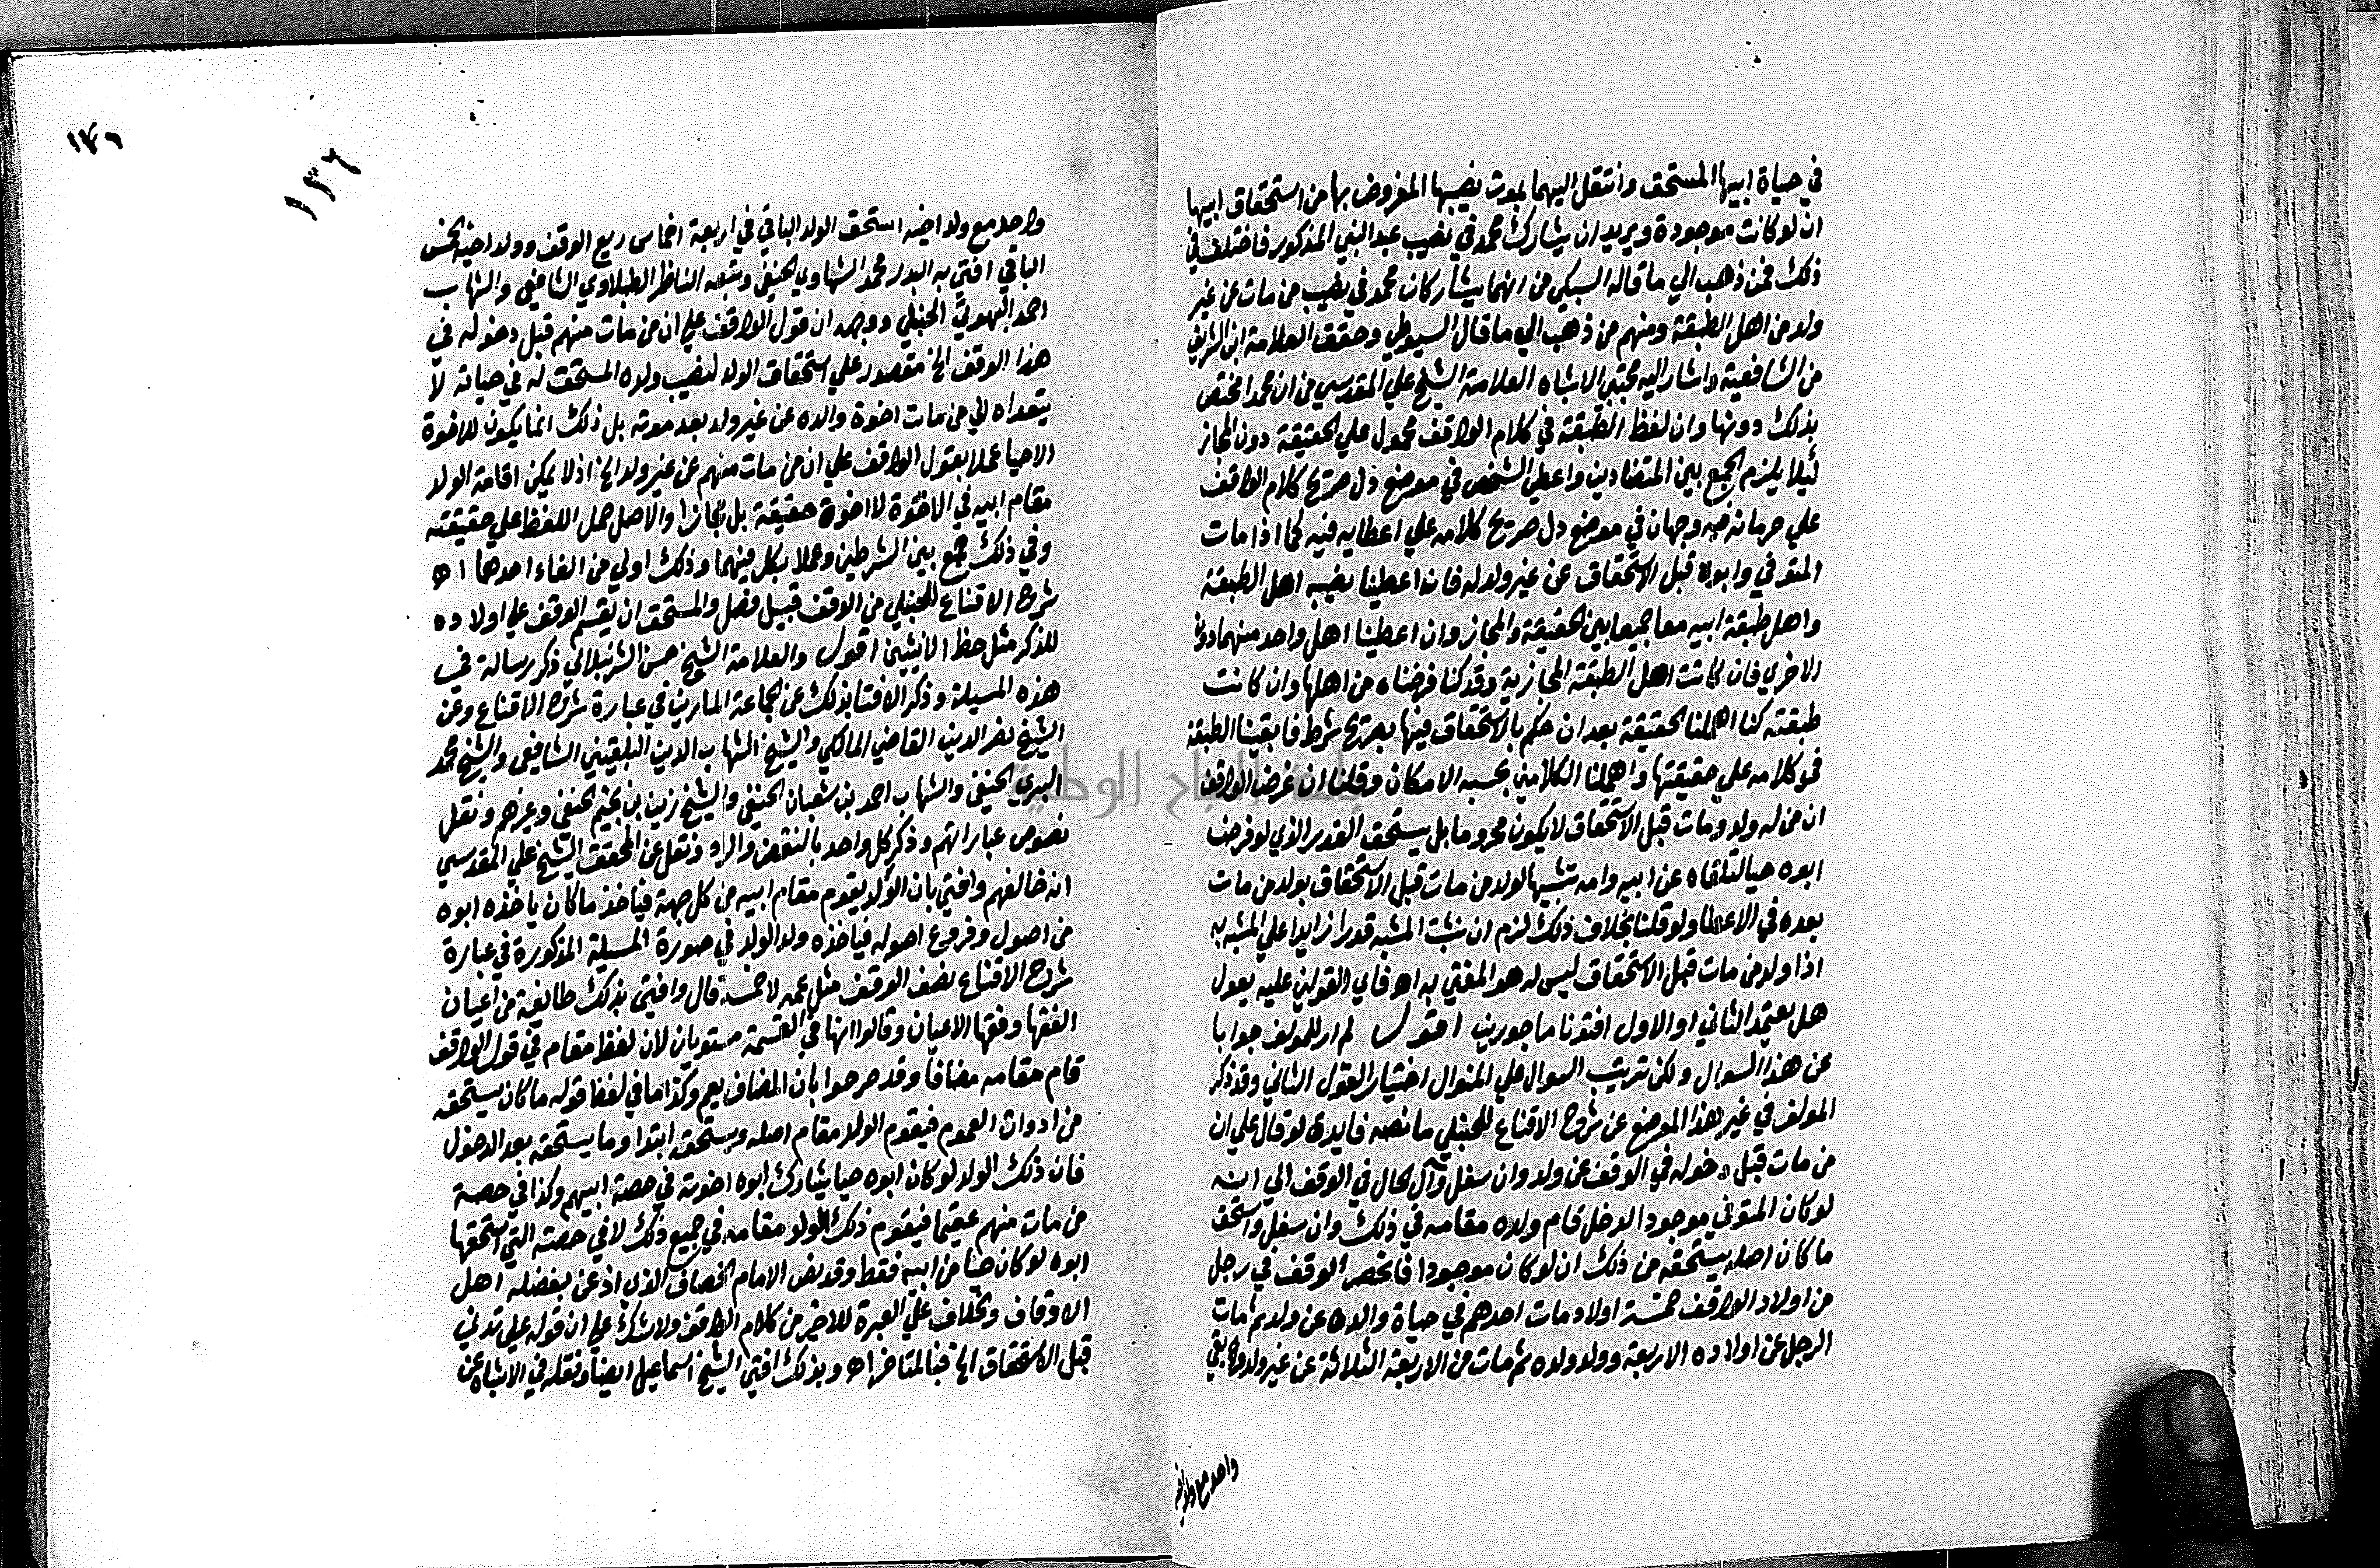 في حياة ابيها المستحق وانتقل اليهما بموت نصيبها المفروض بها من استحقاق ابيها
ان لو كانت موجودة ويريد ان يشارك محمد في نصيب عبد النبي المذكور فاختلف في
ذلك فمن ذهب الي ما قاله السبكي من انهما يشاركان محمد في نصيب من مات عن غير
ولد من اهل الطبقة ومنهم من ذهب الي ما قال السيوطي وحقق العلامة ابن الشريف
من الشافعية واشار اليه محشي الاشباه العلامة الشيخ علي المقدسي من ان محمدا مختص
بذلك دونها وان لفظ الطبقة في كلام الواقف محمول علي الحقيقة دون المجاز
لئلا يلزم الجمع بين المتضادين واعطي الشخص في موضع دل صريح كلام الواقف
علي حرمانه فيه وجهان في موضع دل صريح كلامه علي اعطايه فيه كما اذا مات
المتوفي وابوه قبل الاستحقاق عن غير ولد له فاذا اعطينا نصيبه اهل الطبقة
واهل طبقة ابيه معا جمعنا بين الحقيقة والمجاز وان اعطينا اهل واحد منهما دون
الاخري فان كانت اهل الطبقة المجازية وقد كنا فرضناه من اهلها وان كانت
طبقته كنا اهملنا الحقيقة بعد ان حكم بالاستحقاق فيها بصريح شرط فابقينا الطبقة
في كلامه علي حقيقتها واعملنا الكلامين بحسب الامكان وقلنا ان غرض الواقف
ان من له ولد ومات قبل الاستحقاق لا يكون محروما بل يستحق القدر الذي لو فرض
ابوه حيا لتلقاه عن ابيه وامه تشبيها لولد من مات قبل الاستحقاق بولد من مات
بعده في الاعطا ولو قلنا بخلاف ذلك لزم ان نثبت المشبه قدرا زايدا علي المشبه به
اذ اولد من مات قبل الاستحقاق ليس له هو المفتي به اهـ فاي القولين عليه يعول
هل يعتمد الثاني او الاول افتونا ماجورين اقول لم ار للمولف جوابا
عن هذا السوال ولكن ترتيب السوال علي المنوال اختيار القول الثاني وقد ذكر
المولف في غير هذا الموضع عن شرح الاقناع للحنبلي ما نصه فايدة لو قال علي ان
من مات قبل دخوله في الوقف عن ولد وان سفل وآل الحال في الوقف الي انه
لو كان المتوفي موجود الدخل قام ولده مقامه في ذلك وان سفل واستحق
ما كان اصله يستحقه من ذلك ان لو كان موجودا فانحصر الوقف في رجل
من اولاد الواقف خمسة اولاد مات احدهم في حياة والده عن ولد ثم مات
الرجل عن اولاده الاربعة وولد ولده ثم مات من الاربعة الثلاثة عن غير ولد وبقي
واحد مع ولد اخيه
١٣٦
واحد مع ولد اخيه استحق الولد الباقي في اربعة اخماس ريع الوقف وولد اخيه الخمس
الباقي افتي به البدر محمد الشهاوي الحنفي وتبعه الناظر الطبلاوي الشافعي والشهاب
احمد البهوتي الحنبلي ووجهه ان قول الواقف علي ان من مات منهم قبل دخوله في
هذا الوقف الخ مقصور علي استحقاق الولد لنصيب والده المستحق له في حياته لا
يتعداه الي من مات اخوة والده عن غير ولد بعد موته بل ذلك انما يكون للاخوة
الاحيا عملا بقول الواقف علي ان من مات منهم عن غير ولد الخ اذ لا يمكن اقامة الولد
مقام ابيه في الاخوة لا اخوة حقيقة بل مجازا والاصل حمل اللفظ علي حقيقته
وفي ذلك جمع بين الشرطين وعملا بكل منهما وذلك اولي من الغاء احدهما اهـ
شرح الاقناع للحنبلي من الوقف قبيل فصل والمستحق ان يقسم الوقف علي اولاده
للذكر مثل حظ الانثيين اقول والعلامة الشيخ حسن الشرنبلالي ذكر رسالة في
هذه المسيلة وذكر الافتا بذلك عن الجماعة المارين في عبارة شرح الاقناع وعن
الشيخ نصر الدين القاضي المالكي والشيخ الشهاب الدين البلقيني الشافعي والشيخ محمد
البري الحنفي والشهاب احمد بن شعبان الحنفي والشيخ زين بن نجيم الحنفي وغيرهم ونقل
نصوص عباراتهم وذكر كل واحد بالنقض والرد ونقل عن المحقق الشيخ علي المقدسي
انه خالفهم وافتي بان الولد يقوم مقام ابيه من كل جهة فياخذ ما كان ياخذه ابوه
من اصول وفروع اصوله فياخذه ولد الولد في صورة المسيلة المذكورة في عبارة
شرح الاقناع نصف الوقف مثل عمه لا خمسه قال وافتي بذلك طايفة من اعيان
الفقها وفقها الاعيان وقالوا انها في القسمة مستويان لان لفظ مقام في قول الواقف
قام مقامه مضافا وقد صرحوا بان المضاف يعم وكذا ما في لفظ قوله ما كان يستحقه
من ادوات العموم فيقوم الولد مقام اصله ويستحقه ابتدا وما يستحقه بعد الدخول
فان ذلك الولد لو كان ابوه حيا يشارك ابوه اخوته في حصة ابيهم وكذا في حصة
من مات منهم عقيما فيقوم ذلك الولد مقامه في جميع ذلك لا في حصته التي استحقها
ابوه لو كان حيا من ابيه فقط وقد نص الامام الخصاف الذي اذعن بفضله اهل
الاوقاف وخلاف علي العبرة للاخير من كلام الواقف ولا شك علي ان قوله علي تدلي
قبل الاستحقاق الخ فبالمتاخر اهـ وبذلك افتي الشيخ اسماعيل ايضا ونقله في الاشباه عن